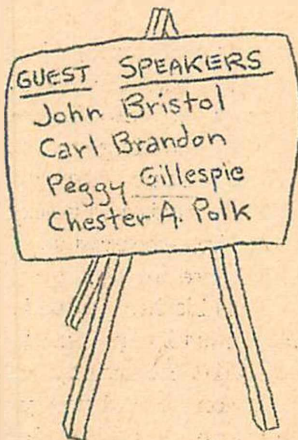 GUEST SPEAKERS
John Bristol
Carl Brandon
Peggy Gillespie
Chester A. Polk